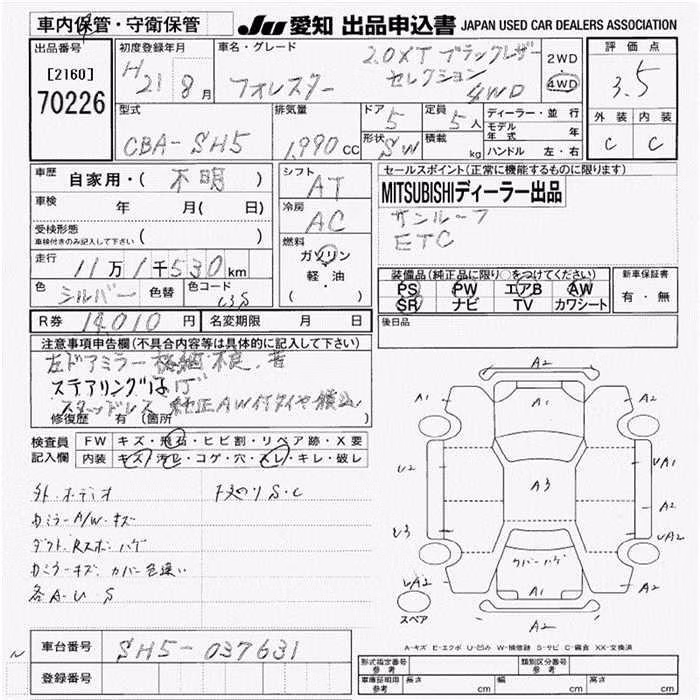 車内保管・守衛保管
JU 愛知 出品申込書 JAPAN USED CAR DEALERS ASSOCIATION
出品番号
[2160]
70226
初度登録年月
H21 8月
車名・グレード
2.0XT ブラックレザー
セレクション
フォレスター 4WD
2WD
4WD
評価点
3.5
外装 内装
C C
型式
CBA-SH5
排気量
1,990 CC
ドア 5
形状 SW
定員 5人
積載 kg
ディーラー・並行
モデル年式 年
ハンドル 左・右
車歴 自家用・( 不明 )
車検 年 月( 日)
受検形態
車検付きのみ記入して下さい ( )
走行 11万1千530km
色 シルバー 色替 色コード
R券 14,010円 名変期限 月 日
シフト
AT
冷房
AC
燃料
ガソリン
軽・油
( )
セールスポイント(正常に機能するものに限ります)
MITSUBISHIディーラー出品
サンルーフ
ETC
装備品(純正品に限り○をつけてください)
PS PW エアB AW
SR ナビ TV カワシート
新車保証書
有・無
後日品
注意事項申告欄(不具合内容等は具体的に記入して下さい)
左ドアミラー格納不良、音
ステアリングはげ
スタッドレス 純正AW付タイヤ積込
修復歴 有 (箇所 )
検査員
記入欄
FW キズ・飛石・ヒビ割・リペア跡・X要
内装 キズ・汚れ・コゲ・穴・スレ・キレ・破レ
外.オーディオ 下廻りS.C
カミラーA/W.キズ
ダクト.Rスポ.ハゲ
カミラーキズ.カバー色違い
各A.U S
A2
A1 A1 A1
U2 A3 UA1
A2
U3 UA2
カバーハゲ
UA2 A1 A2
スペア A2
A-キズ E-エクボ U-凹み W-補修跡 S-サビ C-腐食 XX-交換済
車台番号 SH5-037631
登録番号
形式指定番号
参考
類別区分番号
参考
車庫証明用
参考
長さ cm 幅 cm 高さ cm